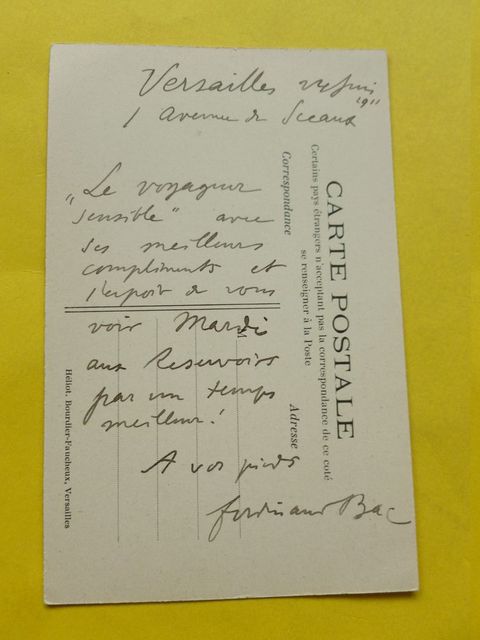 Versailles 24 Juin
1911
1 Avenue de Sceaux
"Le voyageur
sensible" avec
ses meilleurs
compliments et
l'espoir de vous
voir Mardi
aux Reservoirs
par un temps
meilleur!
A vos pieds
Ferdinand Bac
CARTE POSTALE
Certains pays étrangers n'acceptant pas la correspondance de ce coté
se renseigner à la Poste
Correspondance
Adresse
Héliot. Bourdier-Faucheux, Versailles